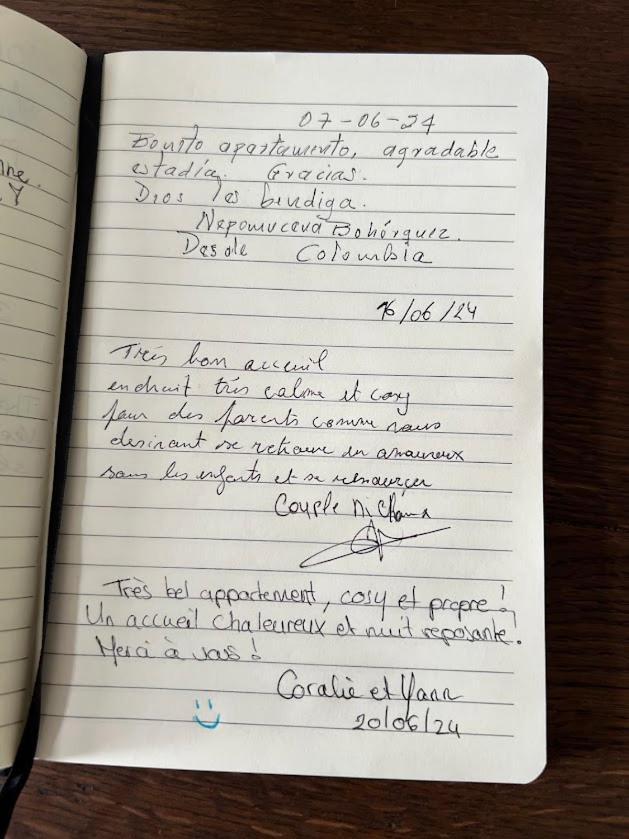 07-06-24
Bonito apartamento, agradable
estadía. Gracias.
Dios les bendiga.
Nepomucena Bohórquez.
Desde Colombia
16/06/24
Très bon acceuil
endruit très calme et cosy
pour des parents comme nous
desirant se retrouve en amoureux
sans les enfants et se ressourcer
Couple
Très bel appartement, cosy et propre !
Un accueil chaleureux et nuit reposante.
Merci à vous !
Coralie et Yann
20/06/24